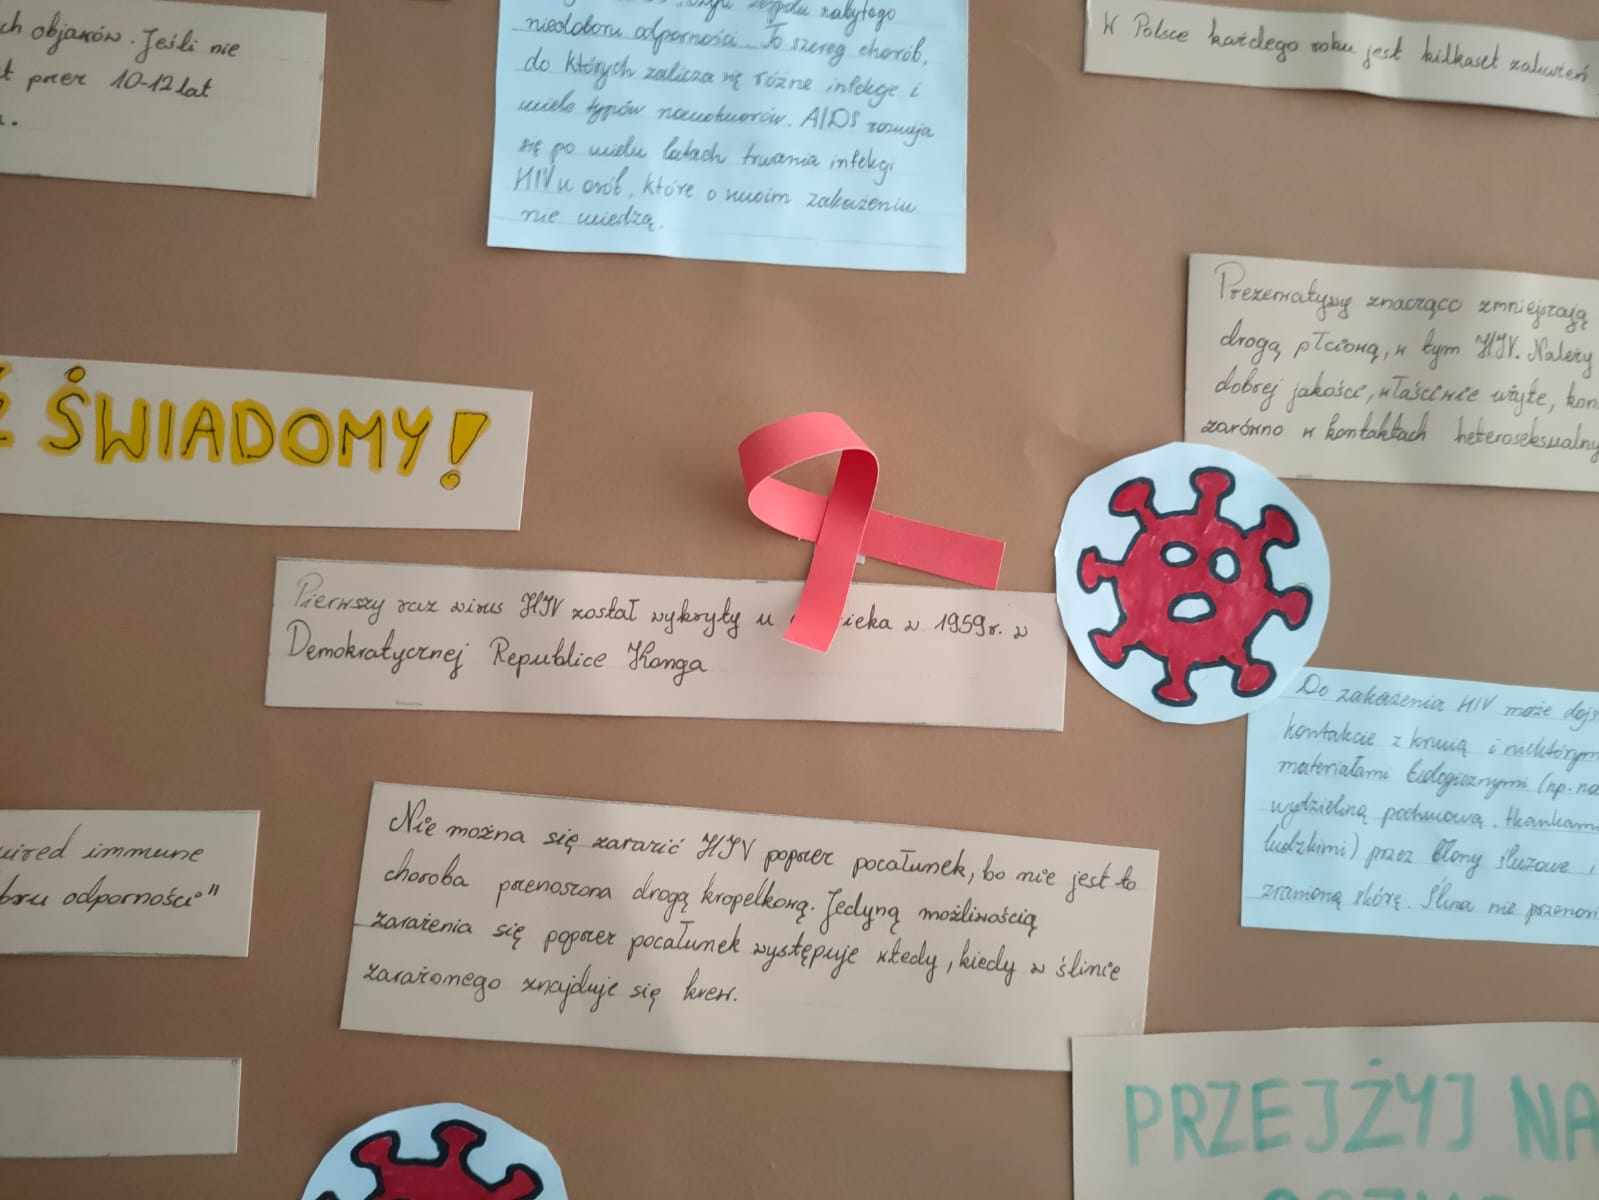 ch objawów. Jeśli nie
przez 10-12 lat
zespołu nabytego
niedoboru odporności. To szereg chorób,
do których zalicza się różne infekcje i
wiele typów nowotworów. AIDS rozwija
się po wielu latach trwania infekcji
HIV u osób, które o swoim zakażeniu
nie wiedzą.
W Polsce każdego roku jest kilkaset zakażeń
Prezerwatywy znacząco zmniejszają
drogą płciową, w tym HIV. Należy
dobrej jakości, właściwie użyte, kon
zarówno w kontaktach heteroseksualny
ŚWIADOMY!
Pierwszy raz wirus HIV został wykryty u ieka w 1959r. w
Demokratycznej Republice Konga
Do zakażenia HIV może dojś
kontakcie z krwią i niektórym
materiałami biologicznymi (np. na
wydzieliną pochwową, tkankami
ludzkimi) przez błony śluzowe i
zranioną skórę. Ślina nie przenos
uired immune
boru odporności"
Nie można się zarazić HIV poprzez pocałunek, bo nie jest to
choroba przenoszona drogą kropelkową. Jedyną możliwością
zarażenia się poprzez pocałunek występuje wtedy, kiedy w ślinie
zarażonego znajduje się krew.
PRZEJŻYJ NA